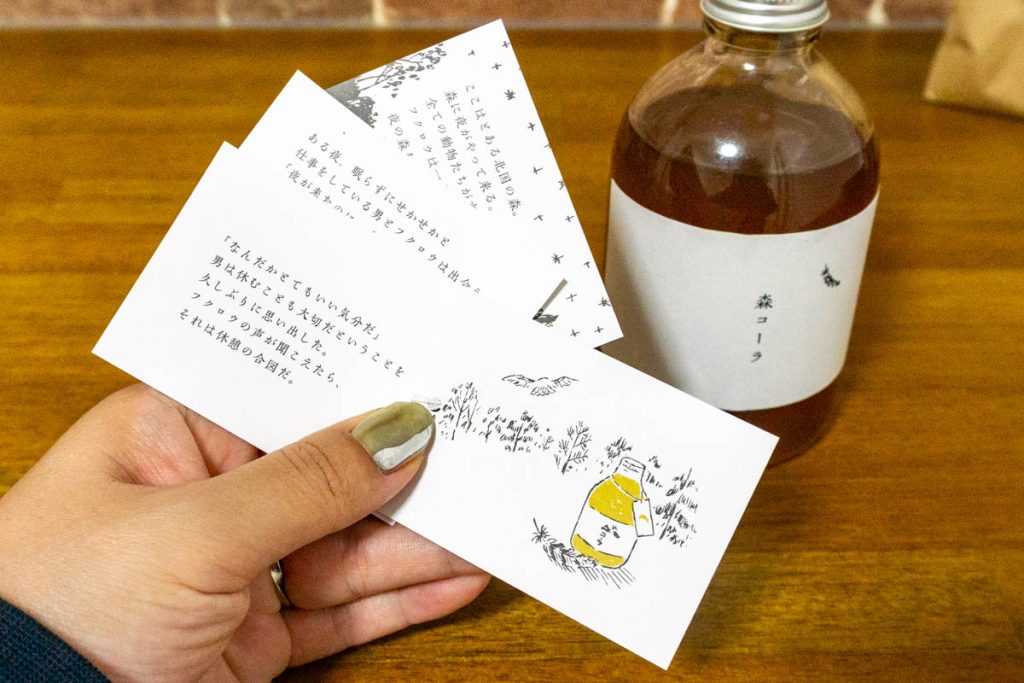 ここはとある北国の森。
森に夜がやって来る。
全ての動物たちが
フクロウは
夜の森
ある夜、眠らずにせかせかと
仕事をしている男とフクロウは出会
「夜が来たの
「なんだかとてもいい気分だ」
男は休むことも大切だということを
久しぶりに思い出した。
フクロウの声が聞こえたら、
それは休憩の合図だ。
森コーラ